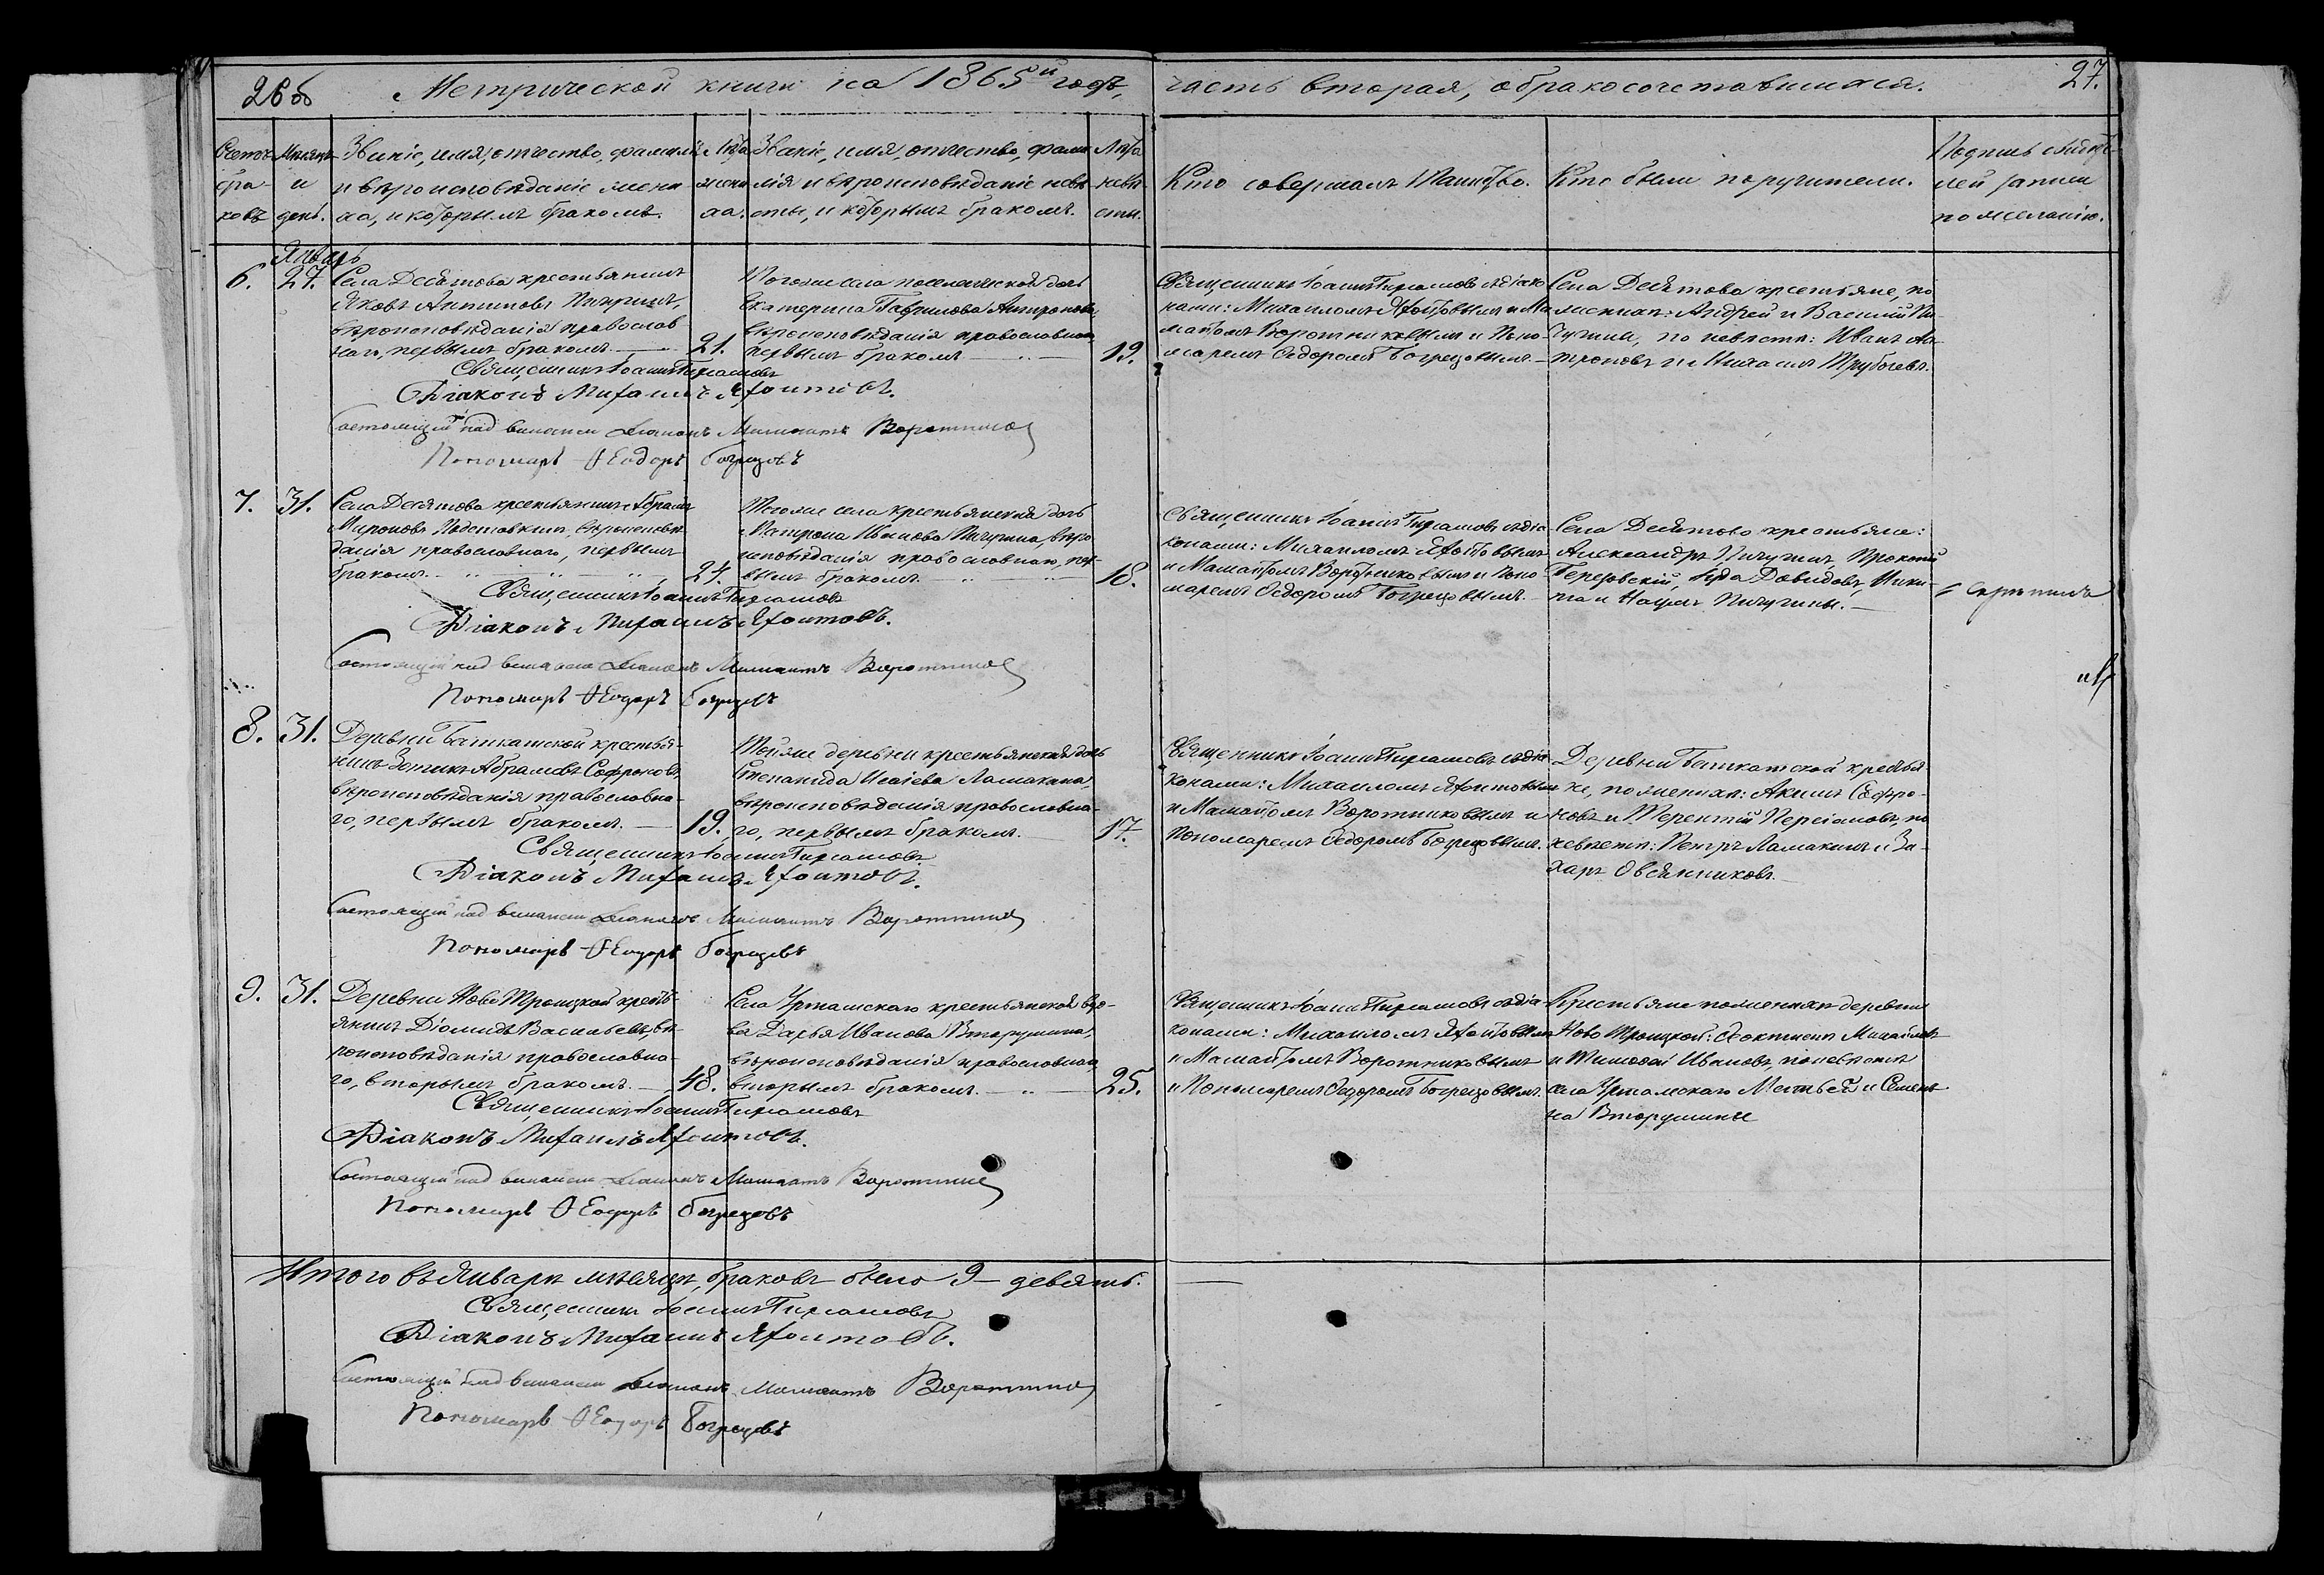 26 об
Метрической книги на 1865й годъ,
часть вторая, о бракосочетавшихся.
27.
Счетъ браковъ
Мѣсяцъ и день.
Званіе, имя, отчество, фамилія
и вѣроисповѣданіе жени-
ха, и которымъ бракомъ.
Лѣта жениха.
Званіе, имя, отчество, фами-
лія и вѣроисповѣданіе невѣ-
сты, и которымъ бракомъ.
Лѣта невѣсты.
Кто совершалъ Таинство.
Кто были поручители.
Подпись свидѣте-
лей записи
по желанію.
Январь
6.
27.
Села Десятова крестьянинъ
Яковъ Антиповъ Пичугинъ,
вѣроисповѣданія православ
наго, первымъ бракомъ.
21.
Того же села
Екатерина Гаврилова
вѣроисповѣданія православнаго
первымъ бракомъ
19.
Священникъ Іоаннъ съ діако
нами: Михаиломъ Яхонтовымъ и Ма
мантомъ Воротниковымъ и Поно
маремъ Ѳедоромъ Богрецовымъ.
Села Десятова крестьяне, по
женихѣ: Андрей и Василій Пи
чугины, по невѣстѣ: Иванъ Ан
троповъ и Михаилъ Трубачевъ.
Священникъ Іоаннъ
Діаконъ Михаилъ Яхонтовъ.
Состоящій на вакансіи Діаконъ Мамантъ Воротников
Пономарь Ѳеодоръ Богрецовъ
7.
31.
Села Десятова крестьянинъ Абрамъ
Мироновъ вѣроисповѣ
данія православнаго, первымъ
бракомъ.
24.
Того же села крестьянская дочь
Матрона Иванова Пичугина, вѣро
исповѣданія православнаго, пер-
вымъ бракомъ
18.
Священникъ Іоаннъ съ діа-
конами: Михаиломъ Яхонтовымъ
и Мамантомъ Воротниковымъ и Поно
маремъ Ѳедоромъ Богрецовымъ.
Села Десятова крестьяне:
Александръ Пичугинъ, Прокопій
Березовскій, Давидовъ, Ники-
та и Пичугины.
Священникъ Іоаннъ
Діаконъ Михаилъ Яхонтовъ.
Состоящій на вакансіи Діаконъ Мамантъ Воротников
Пономарь Ѳеодоръ Богрецовъ
8.
31.
Деревни Баткатской крестья-
нинъ Зотикъ Абрамовъ Софроновъ,
вѣроисповѣданія православна-
го, первымъ бракомъ.
19.
Той же деревни крестьянская дочь
Степанида Исаіева Ламакина,
вѣроисповѣданія православна-
го, первымъ бракомъ.
17.
Священникъ Іоаннъ съ діа-
конами: Михаиломъ Яхонтовымъ
и Мамантомъ Воротниковымъ и
Пономаремъ Ѳедоромъ Богрецовымъ.
Деревни Баткатской крестья
не, по женихѣ: Акимъ Софро-
новъ и Терентій по
невѣстѣ: Петръ Ламакинъ и За-
харъ Овсянниковъ.
Священникъ Іоаннъ
Діаконъ Михаилъ Яхонтовъ.
Состоящій на вакансіи Діаконъ Мамантъ Воротников
Пономарь Ѳеодоръ Богрецовъ
9.
31.
Деревни Ново Троицкой кресть-
янинъ Діомидъ Васильевъ, вѣ-
роисповѣданія православна-
го, вторымъ бракомъ.
48.
Села Уртамскаго крестьянская вдо-
ва Дарья Иванова Вторушина,
вѣроисповѣданія православнаго
вторымъ бракомъ.
25.
Священникъ Іоаннъ съ діа-
конами: Михаиломъ Яхонтовымъ
и Мамантомъ Воротниковымъ
и Пономаремъ Ѳедоромъ Богрецовымъ.
Крестьяне по женихѣ деревни
Ново Троицкой: Ѳеоктистъ Михайловъ
и Тимофей Ивановъ, по невѣстѣ
села Уртамскаго Матвей и Семенъ
Вторушины
Священникъ Іоаннъ
Діаконъ Михаилъ Яхонтовъ.
Состоящій на вакансіи Діаконъ Мамантъ Воротников
Пономарь Ѳеодоръ Богрецовъ
Итого въ Январѣ мѣсяцѣ, браковъ было 9 – девять.
Священникъ Іоаннъ
Діаконъ Михаилъ Яхонтовъ.
Состоящій на вакансіи Діаконъ Мамантъ Воротников
Пономарь Ѳеодоръ Богрецовъ